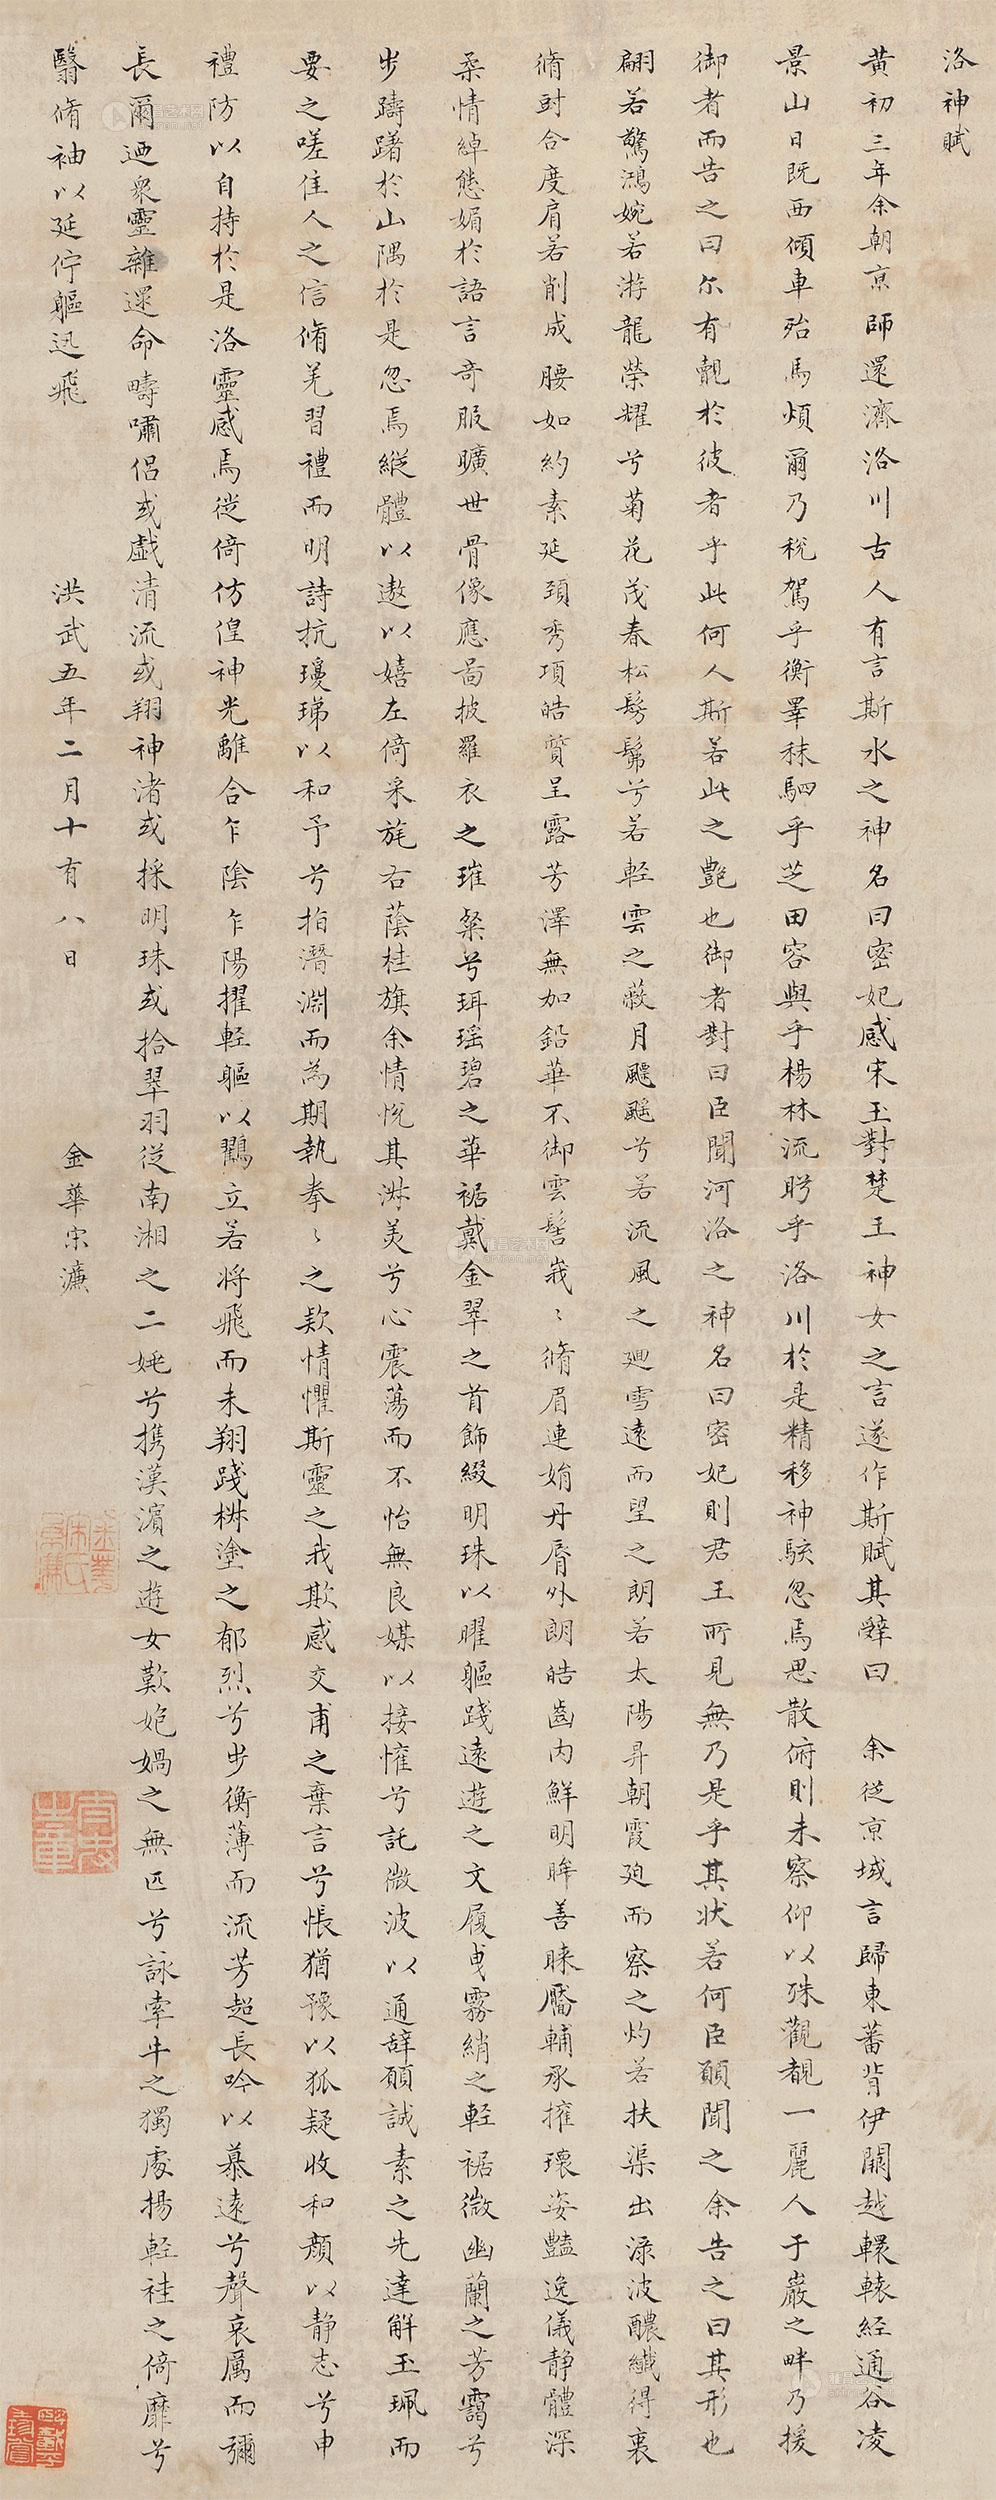 洛神賦
黄初三年余朝京師還濟洛川古人有言斯水之神名曰宓妃感宋玉對楚王神女之言遂作斯賦其辭曰　余從京域言歸東蕃背伊闕越轘轅経通谷凌
景山日既西傾車殆馬煩爾乃税駕乎蘅皋秣駟乎芝田容與乎楊林流眄乎洛川於是精移神駭忽焉思散俯則未察仰以殊觀覩一麗人于巖之畔乃援
御者而告之曰尓有覿於彼者乎此何人斯若此之艷也御者對曰臣聞河洛之神名曰宓妃則君王所見無乃是乎其状若何臣願聞之余告之曰其形也
翩若驚鴻婉若游龍榮耀兮菊花茂春松髣髴兮若輕雲之蔽月飄颻兮若流風之廻雪遠而望之朗若太陽昇朝霞廹而察之灼若扶渠出渌波醲纖得衷
脩尌合度肩若削成腰如約素延頚秀項皓質呈露芳澤無加鉛華不御雲髻峩〻脩眉連娟丹脣外朗皓齒内鮮明眸善睞靨輔承擁瓌姿豔逸儀静體深
柔情綽態媚於語言奇服曠世骨像應啚披羅衣之璀粲兮珥瑶碧之華裾戴金翠之首飾綴明珠以曜軀踐遠遊之文履曵霧綃之輕裾微幽蘭之芳藹兮
歩躊躇於山隅於是忽焉縦體以遨以嬉左倚采旄右蔭桂旗余情恱其淋美兮心震蕩而不怡無良媒以接懽兮託微波以通辝願誠素之先達解玉珮而
要之嗟佳人之信脩羌習禮而明詩抗瓊珶以和予兮指潛淵而為期執拳〻之款情懼斯靈之我欺感交甫之棄言兮悵猶豫以狐疑收和顔以静志兮申
禮防以自持於是洛靈感焉徙倚仿偟神光離合乍陰乍陽擢輕軀以鸖立若将飛而未翔踐椒塗之郁烈兮歩衡薄而流芳超長吟以慕遠兮聲哀厲而彌
長爾迺衆靈雜遝命疇嘯侣或戯清流或翔神渚或採明珠或拾翠羽従南湘之二姚兮携漢濵之遊女歎匏媧之無匹兮詠牽牛之獨處揚輕袿之倚靡兮
翳脩袖以延佇軀迅飛　洪武五年二月十有八日　金華宋濂